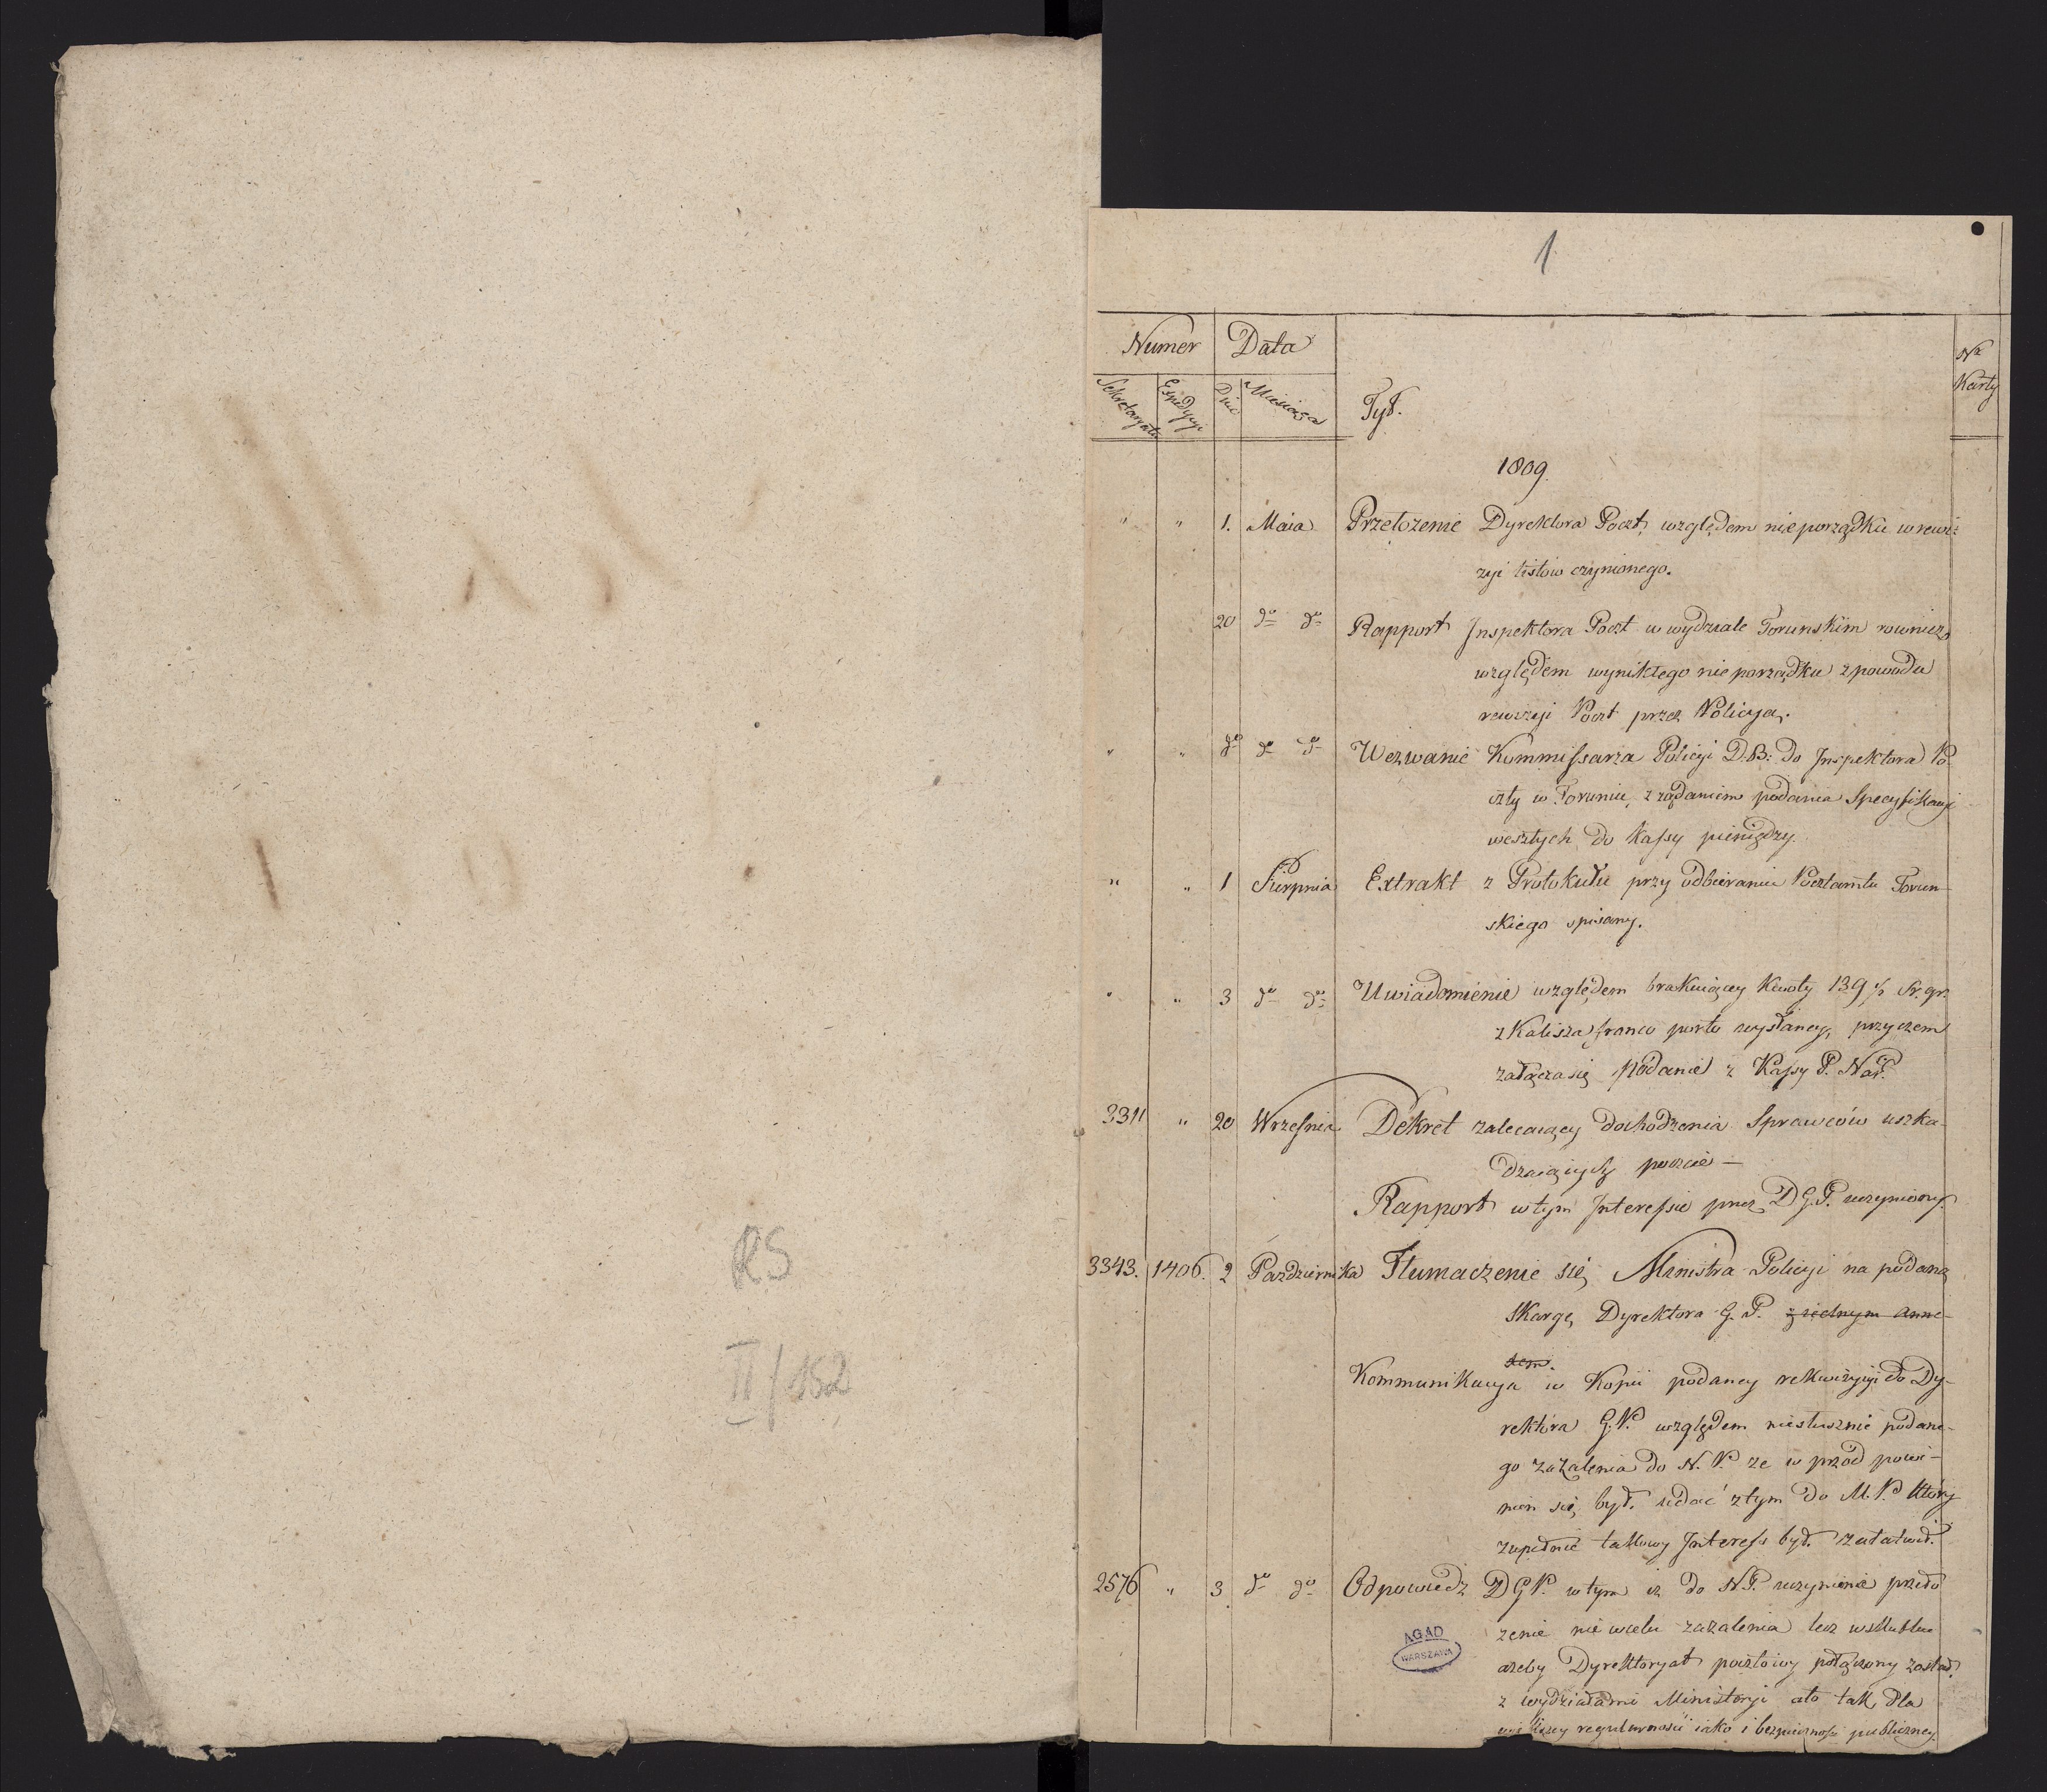 RS
II/152
1
Numer Data
Nr
Karty
Sekretaryatu Expedycyi Dnia Miesiąca Tyt.
1809.
" " 1. Maia Przełożenie Dyrektora Poczt, względem nieporządku w rewi-
zyi listów czynionego.
20 do do Rapport Inspektora Poczt w wydziale Torunskim rownież
względem wynikłego nieporządku z powodu
rewizyi Poczt przez Policyą.
" " do do do Wezwanie Kommissarza Policyi D.B: do Inspektora Po-
czty w Toruniu, z żądaniem podania Specyfikacyi
weszłych do Kassy pieniędzy.
" " 1 Sierpnia Extrakt z Protokułu przy odbieraniu Pocztamtu Torun-
skiego spisany.
" " 3 do do Uwiadomienie względem brakuiącey kwoty 139 sr. gr.
z Kalisza franco porto wysłaney, przyczem
załącza się podanie z Kassy P. Nad.
3311 " 20 Wrzesnia Dekret zalecaiący dochodzenia Sprawców uszka-
dzaiących poczcie —
Rapport w tym Interessie przez D.G.P. uczyniony.
3343. 1406. 2 Pazdziernika Tłumaczenie się Ministra Policyi na podaną
skargę Dyrektora G. P. z iednym anne-
xem.
Kommunikacya w Kopii podaney rekwizycyi do Dy-
rektora G.P. względem niesłusznie podane-
go zażalenia do N. P. ze w przód powi-
nien się był udać z tym do M. P. który
zupełnie takowy Interess był załatwił.
2576 " 3. do do Odpowiedz DGP. w tym iz do N.P. uczynione przeło
żenie nie w celu zażalenia lecz w skutku
ażeby Dyrektoryat pocztowy połączony został
z wydziałami Ministeryi a to tak dla
większey regularnosci iako i bezpiecznosci publiczney.
AGAD
WARSZAWA